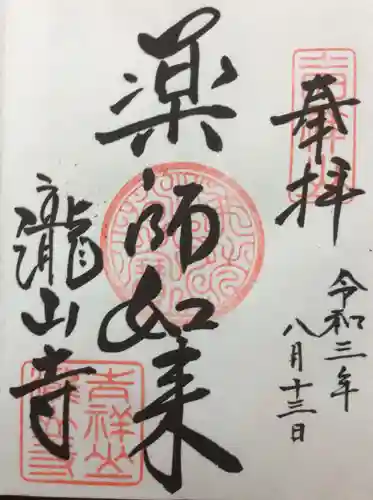 奉拝
令和三年
八月十三日
薬師如来
瀧山寺
吉祥山
瀧山寺